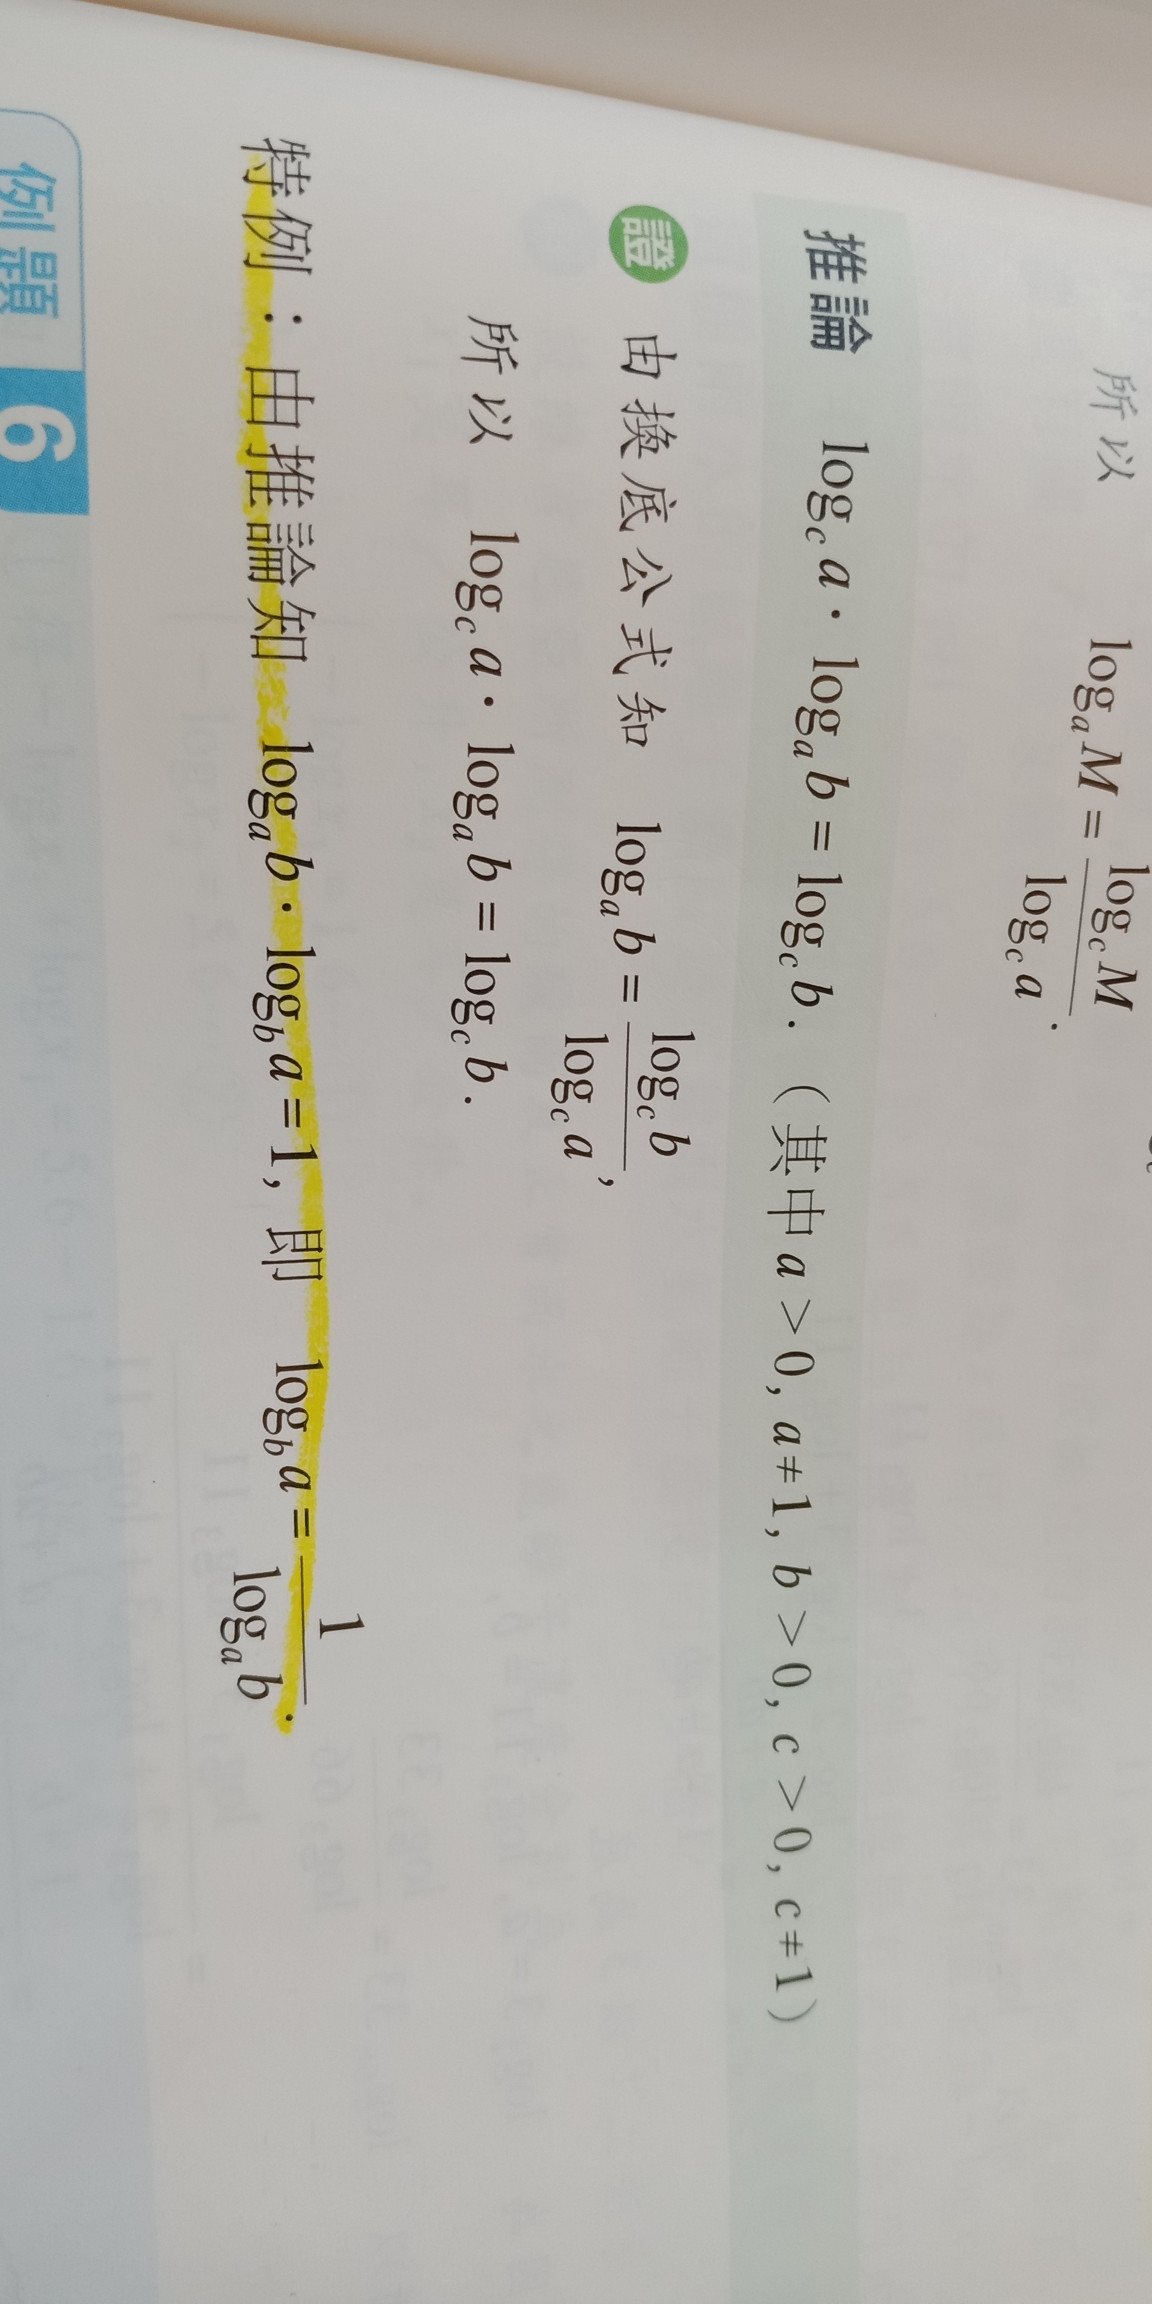 所以 logₐM = \frac{log_c M}{log_c a}.
推論 log_c a · logₐ b = log_c b.（其中 a > 0, a ≠ 1, b > 0, c > 0, c ≠ 1）
證 由換底公式知 logₐ b = \frac{log_c b}{log_c a},
所以 log_c a · logₐ b = log_c b.
特例：由推論知 logₐ b · log_b a = 1, 即 log_b a = \frac{1}{logₐ b}.
例題 6